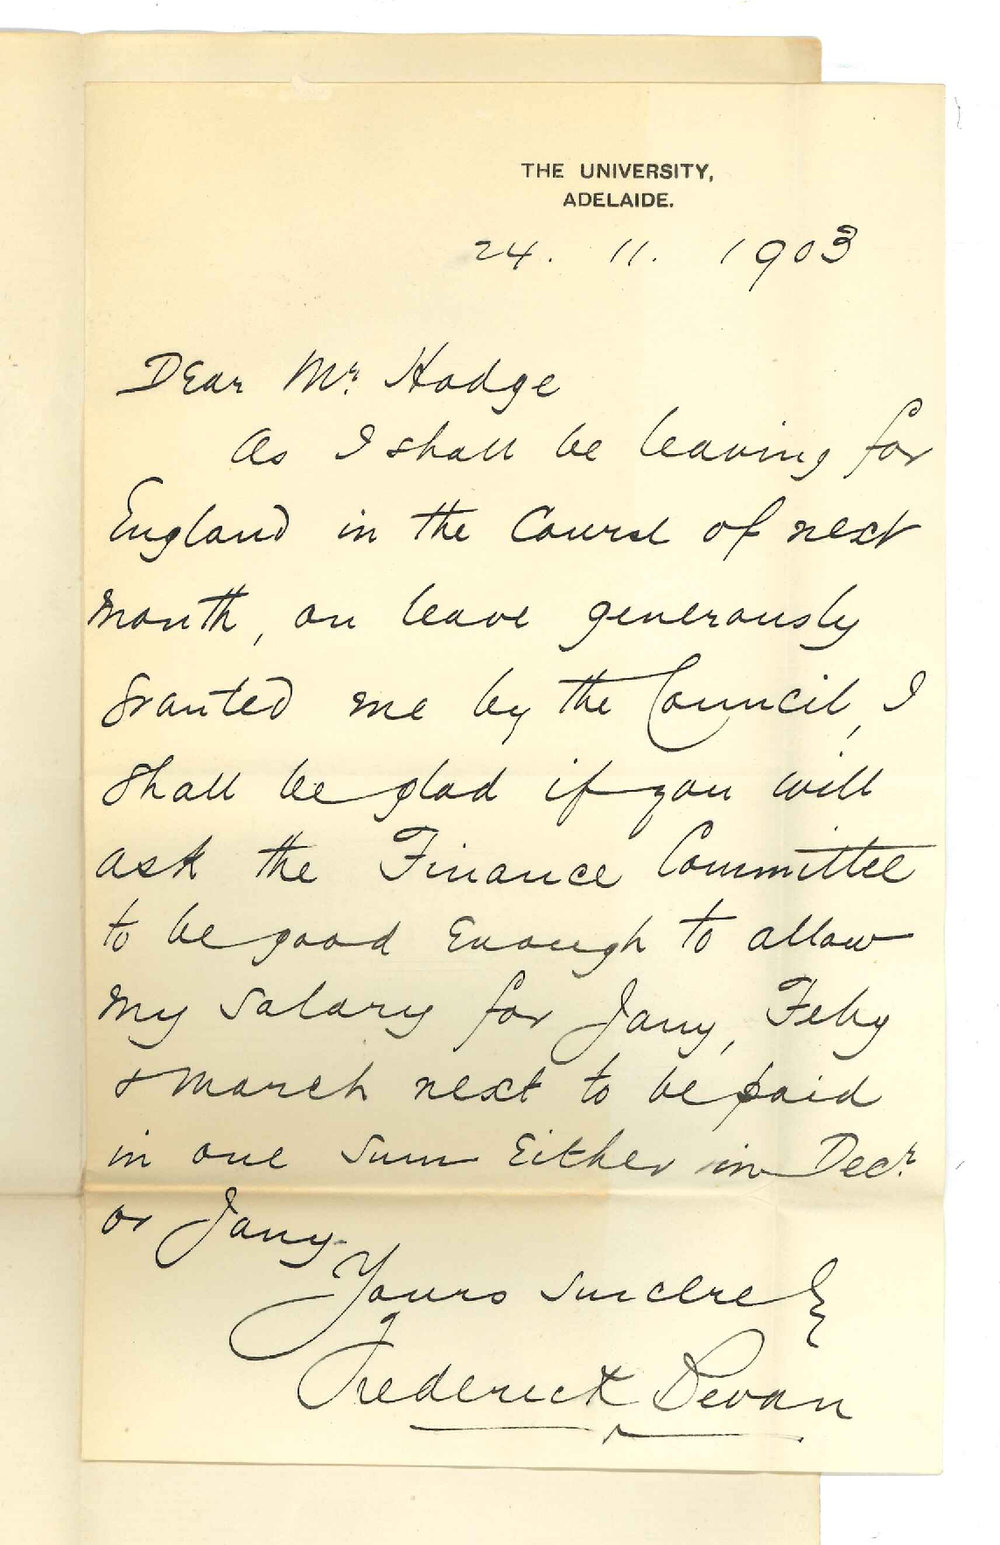 THE UNIVERSITY,
ADELAIDE.
24. 11. 1903
Dear Mr. Hodge
As I shall be leaving for
England in the Course of next
month, on leave generously
granted me by the Council, I
shall be glad if you will
ask the Finance Committee
to be good enough to allow
my salary for Jany, Feby
& March next to be paid
in one sum either in Decr.
or Jany.
Yours sincerely
Frederick Bevan